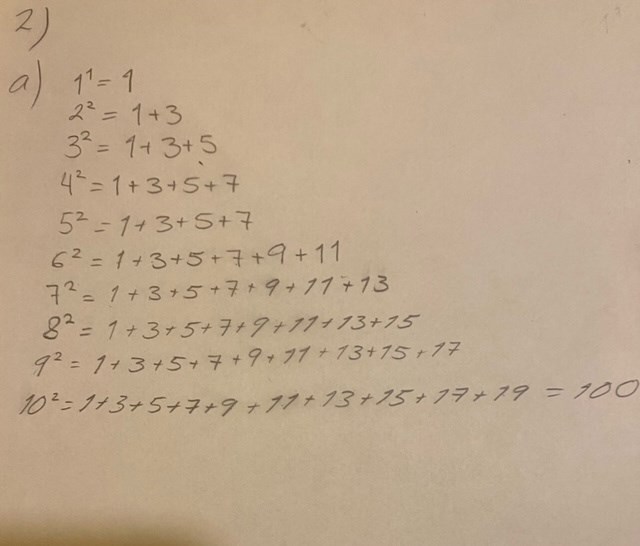 2)
a) 1¹ = 1
2² = 1+3
3² = 1+3+5
4² = 1+3+5+7
5² = 1+3+5+7
6² = 1+3+5+7+9+11
7² = 1+3+5+7+9+11+13
8² = 1+3+5+7+9+11+13+15
9² = 1+3+5+7+9+11+13+15+17
10² = 1+3+5+7+9+11+13+15+17+19 = 100